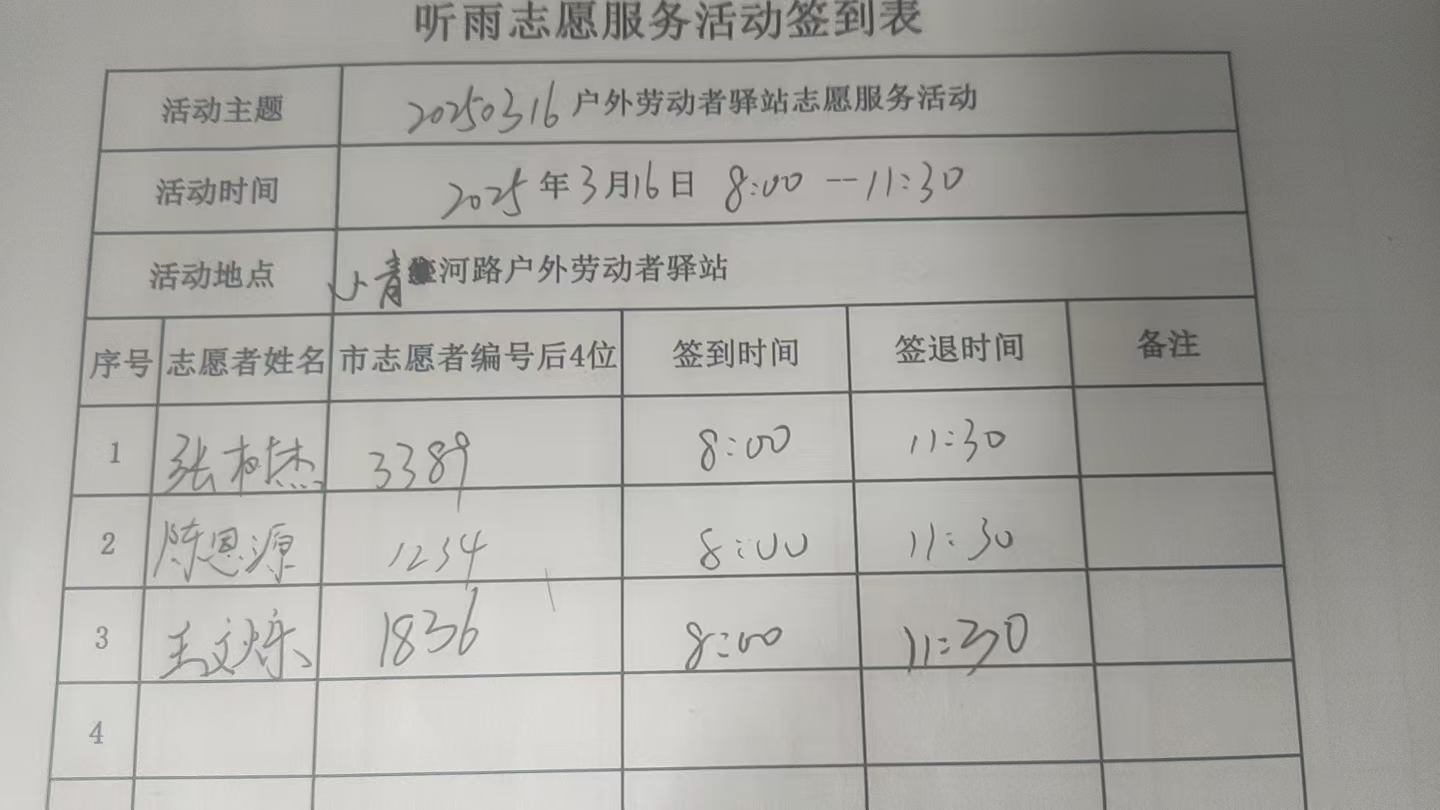 听雨志愿服务活动签到表
活动主题 20250316户外劳动者驿站志愿服务活动
活动时间 2025年3月16日 8:00--11:30
活动地点 小青河路户外劳动者驿站
序号 志愿者姓名 市志愿者编号后4位 签到时间 签退时间 备注
1 张树杰 3389 8:00 11:30
2 陈恩源 1234 8:00 11:30
3 王文烁 1836 8:00 11:30
4